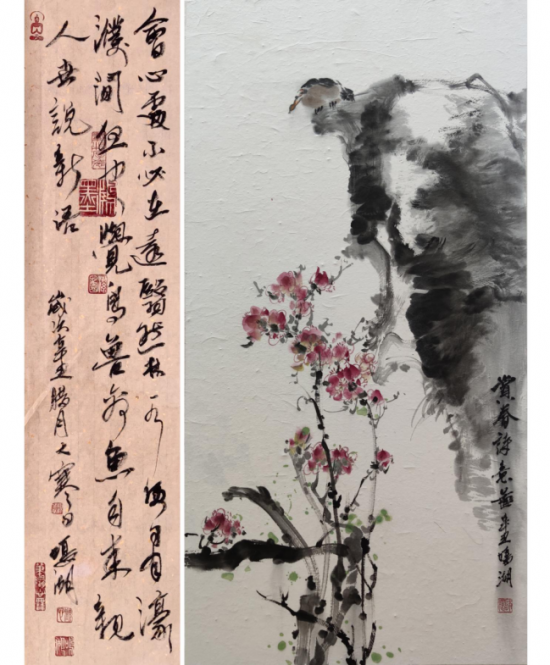 會心處不必在遠翳然林水便自有濠
濮間想也覺鳥獸禽魚自來親
人世說新語
歲次辛丑臘月大寒之日鳴湖
賞春詩意辛丑鳴湖